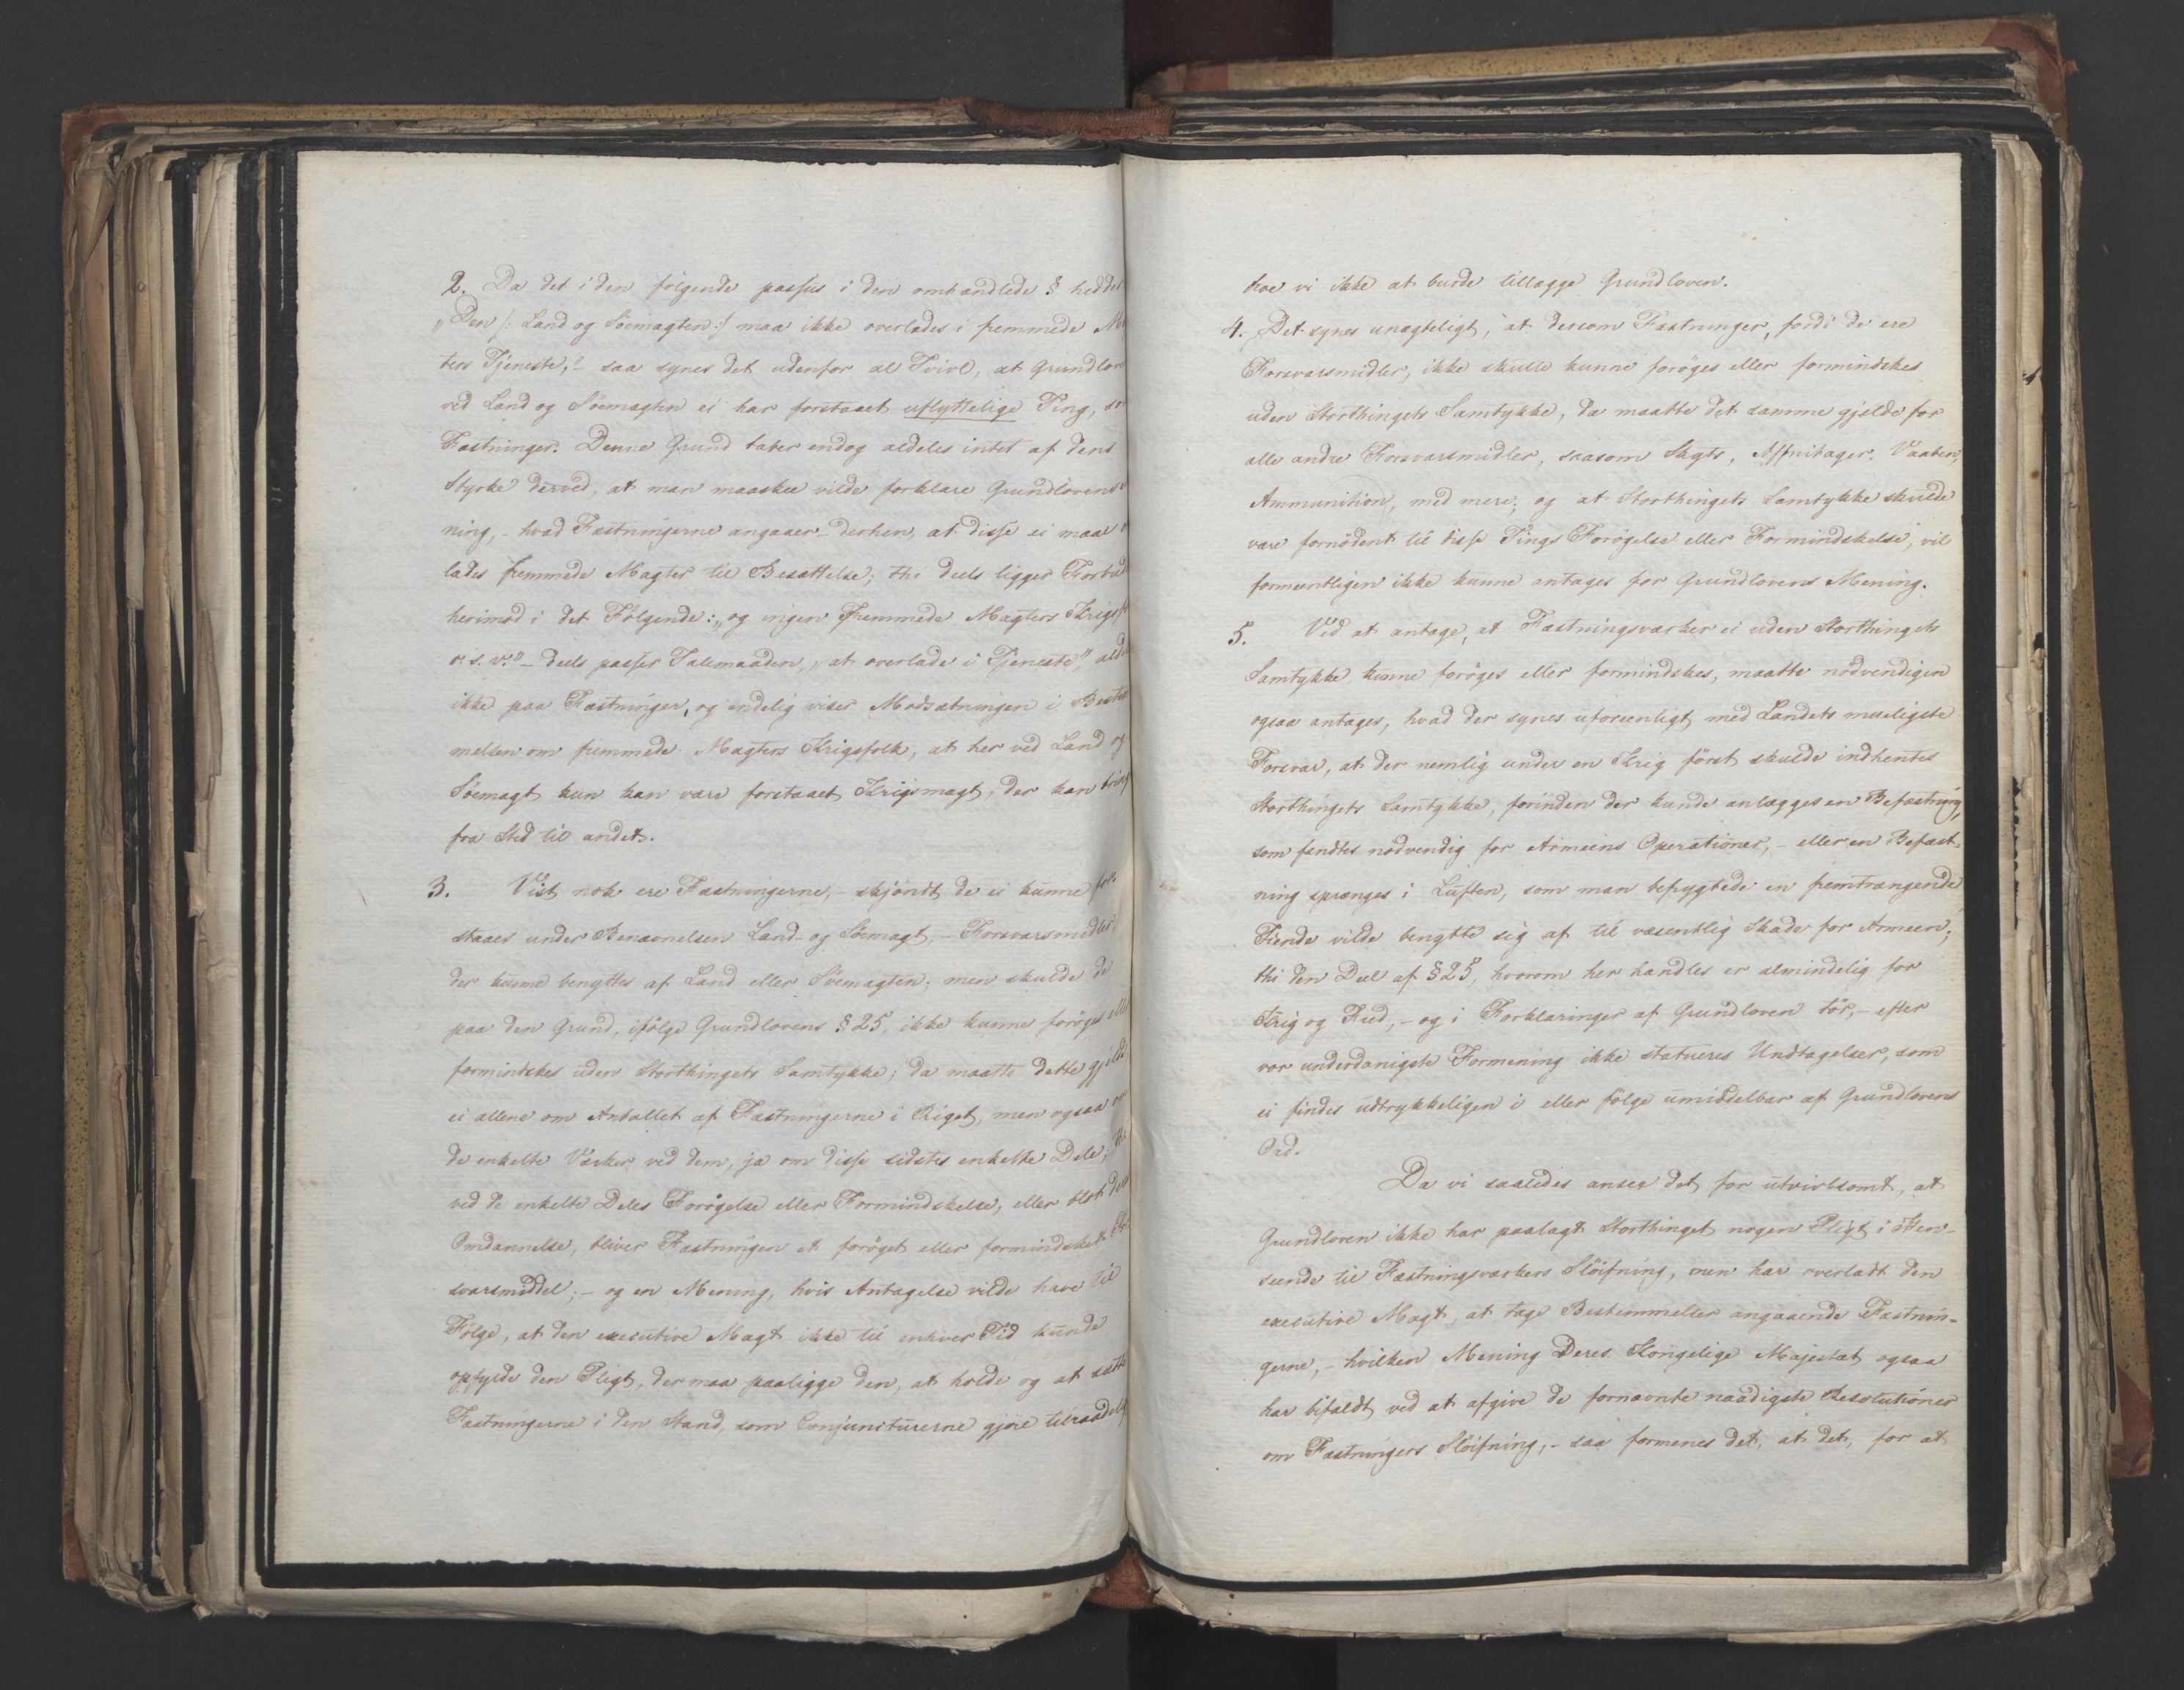 2. Da det i den følgende passus i den omhandlede § hedder
„Den /: Land og Søemagten :/ maa ikke overlades i fremmede
ters Tjeneste," saa synes det udenfor al Tvivl, at Grundlov
ved Land og Søemagten ei har forstaaet uflyttelige Ting,
Fæstninger. Denne Grund taber endog aldeles intet af dens
Styrke derved, at man maaskee vilde forklare Grundlovens
ning, - hvad Fæstningerne angaaer - derhen, at disse ei maae
lades fremmede Magter til Besættelse; thi deels ligger Forbud
herimod i det Følgende: „og ingen fremmede Magters Krigsf
o. s. v." - deels passer Talemaaden, „at overlade i Tjeneste," alde
ikke paa Fæstninger, og endelig viser Modsætningen i Bestem
melsen om fremmede Magters Krigsfolk, at her ved Land og
Søemagt kun kan være forstaaet Krigsmagt, der kan
fra Sted til andet.
3. Vist nok ere Fæstningerne, - skjøndt de ei kunne for-
staaes under Benævnelsen Land- og Søemagt, - Forsvarsmidler,
der kunne benyttes af Land eller Søemagten; men skulde de
paa den Grund, ifølge Grundlovens § 25, ikke kunne forøges eller
formindskes uden Storthingets Samtykke; da maatte dette gjelde
ei allene om Antallet af Fæstningerne i Riget, men ogsaa om
de enkelte Værker ved dem, ja om disse sidstes enkelte Dele; thi
ved de enkelte Deles Forøgelse eller Formindskelse, eller blot deres
Omdannelse, bliver Fæstningen et forøget eller formindsket For-
svarsmiddel; - og en Mening, hvis Antagelse vilde have til
Følge, at den executive Magt ikke til enhver Tid kunde
opfylde den Pligt, der maa paaligge den, at holde og at sætte
Fæstningerne i den Stand, som Conjuncturerne gjøre tilraadelig
troe vi ikke at burde tillægge Grundloven.
4. Det synes unægteligt, at dersom Fæstninger, fordi de ere
Forsvarsmidler, ikke skulle kunne forøges eller formindskes
uden Storthingets Samtykke, da maatte det samme gjelde for
alle andre Forsvarsmidler, saasom Vaaben,
Ammunition, med mere; og at Storthingets Samtykke skulde
være fornødent til disse Tings Forøgelse eller Formindskelse, vil
formeentligen ikke kunne antages for Grundlovens Mening.
5. Ved at antage, at Fæstningsværker ei uden Storthingets
Samtykke kunne forøges eller formindskes, maatte nødvendigen
ogsaa antages, hvad der synes uforeenligt med Landets mueligste
Forsvar, at der nemlig under en Krig først skulde indhentes
Storthingets Samtykke, forinden der kunde anlægges en Befæstning,
som fandtes nødvendig for Armeens Operationer, - eller en Befæst-
ning sprænges i Luften, som man befrygtede en fremtrængende
Fiende vilde benytte sig af til væsentlig Skade for Armeen;
thi den Deel af § 25, hvorom her handles er almindelig for
Krig og Fred, - og i Forklaringer af Grundloven tør, - efter
vor underdanigste Formening ikke statueres Undtagelser, som
ei findes udtrykkeligen i eller følge umiddelbar af Grundlovens
Ord.
Da vi saaledes ansee det for utvivlsomt, at
Grundloven ikke har paalagt Storthinget nogen Pligt i Hen-
seende til Fæstningsværkers Sløifning, men har overladt den
executive Magt, at tage Bestemmelser angaaende Fæstnin-
gerne, - hvilken Mening Deres Kongelige Majestæt ogsaa
har bifaldt ved at afgive de fornævnte naadigste Resolutioner
om Fæstningers Sløifning, - saa formenes det, at det, for at